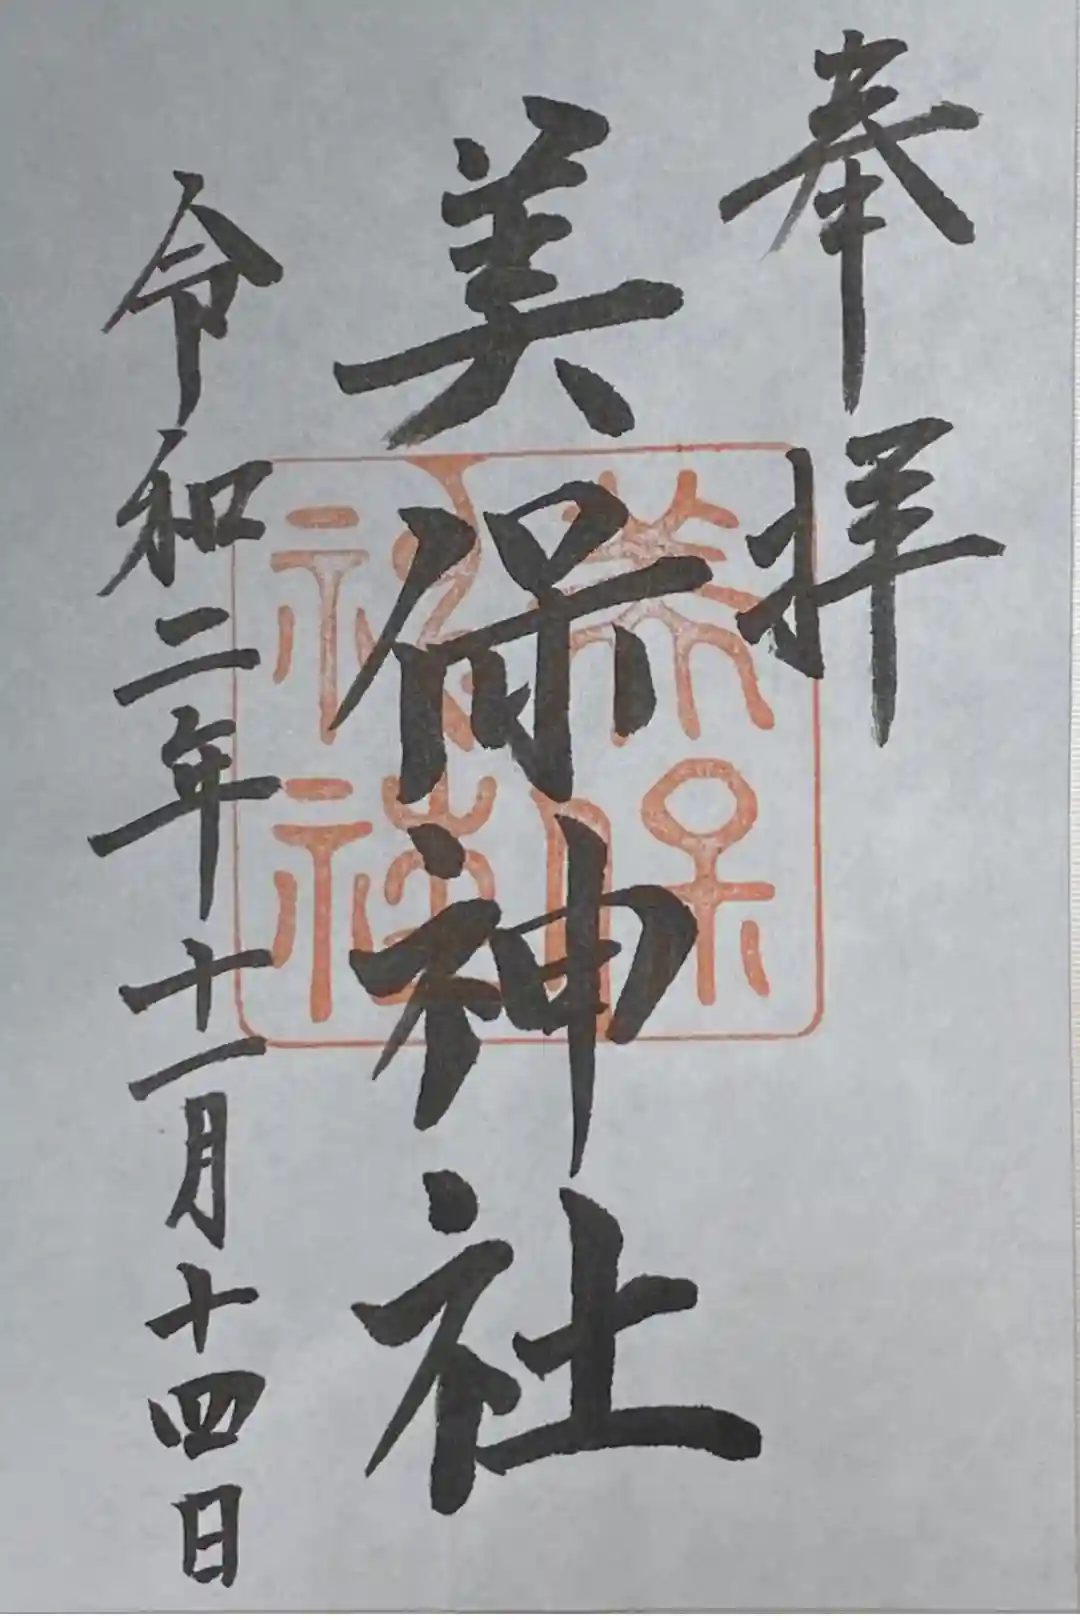 奉拝
美保神社
美保神社
令和二年十一月十四日